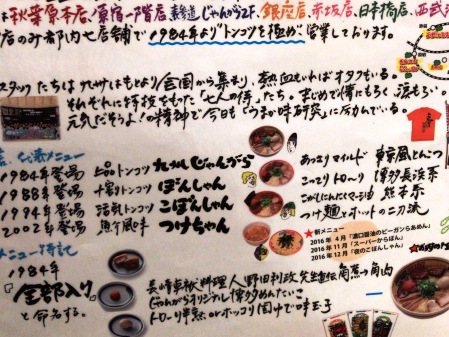 は秋葉原本店、原宿一階店、表参道じゃんがら2F、銀座店、赤坂店、日本橋店、西武
店のみ都内七店舗で1984年よりトンコツを極め、営業しております。
スタッフたちは九州はもとより全国から集まり、熱血もいればオタクもいる。
それぞれに特技をもった「七人の侍」たち。まじめで情にもろく涙もろい。
元気だそうよ!の精神で今日も「うまか味研究」に励んでいる。
メニュー
1984年登場 上品トンコツ 九州じゃんがら あっさりマイルド 東京風とんこつ
1988年登場 十割りトンコツ ぼんしゃん こってりトローリ 博多長浜系
1994年登場 活気トンコツ こぼんしゃん こがしにんにくマー油 熊本系
2002年登場 魚介風味 つけちゃん つけ麺とホットの二刀流
★新メニュー
2016年 4月「濃口醤油のビーガンらあめん」
2016年 11月「スーパーからぼん」
2016年 12月「夜のこぼんしゃん」
メニュー特記
1984年
『全部入り』
と命名する。
長崎卓袱料理人野田利政先生直伝角煮っ角肉
じゃんがらオリジナル博多めんたいこ
トローリ半熟orホッコリ固ゆで味玉子